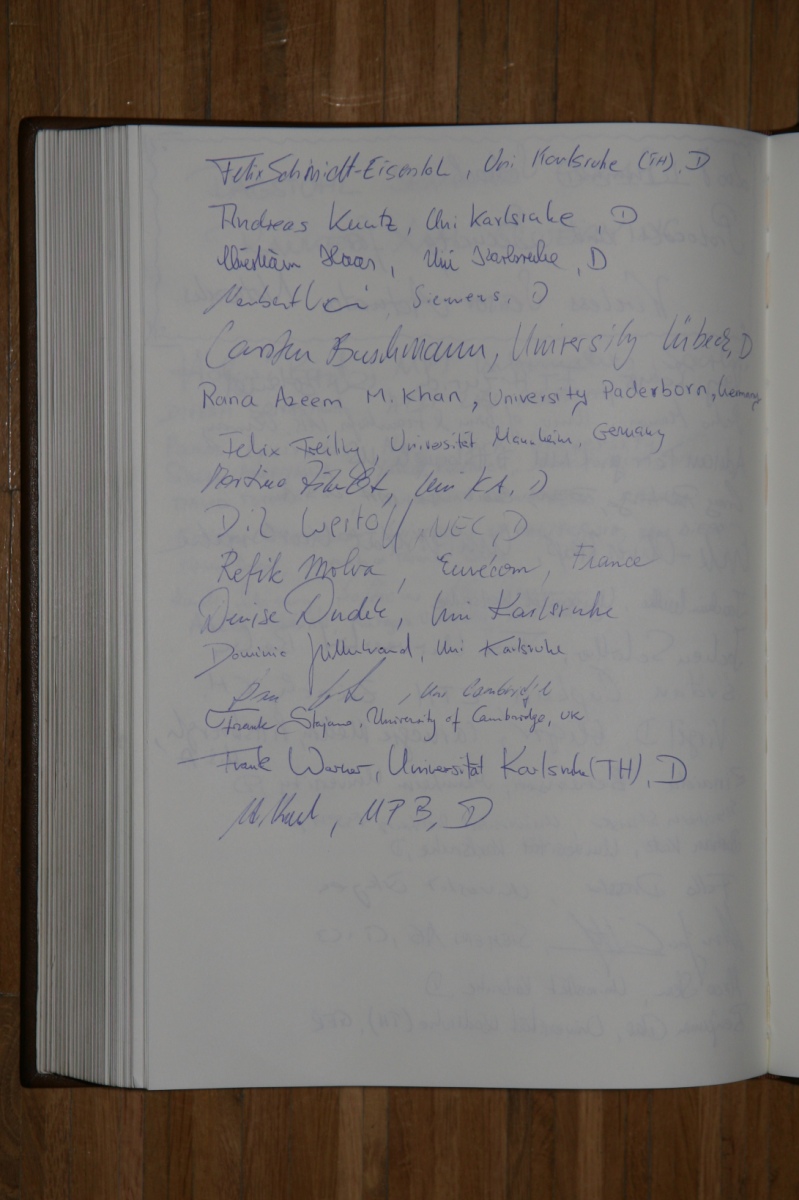 Felix Schmidt-Eisenlohr, Uni Karlsruhe (TH), D
Andreas Kuntz, Uni Karlsruhe, D
Christian Haas, Uni Karlsruhe, D
Norbert Siemens, D
Carsten Buschmann, University Lübeck, D
Rana Azeem M. Khan, University Paderborn, Germany
Felix Freiling, Universität Mannheim, Germany
Martina Zitterbart, Uni KA, D
Dirk Westhoff, NEC, D
Refik Molva, Eurécom, France
Denise Dudek, Uni Karlsruhe
Dominic Hillenbrand, Uni Karlsruhe
, Uni Cambridge
Frank Stajano, University of Cambridge, UK
Frank Werner, Universität Karlsruhe (TH), D
H. Karl, UPB, D